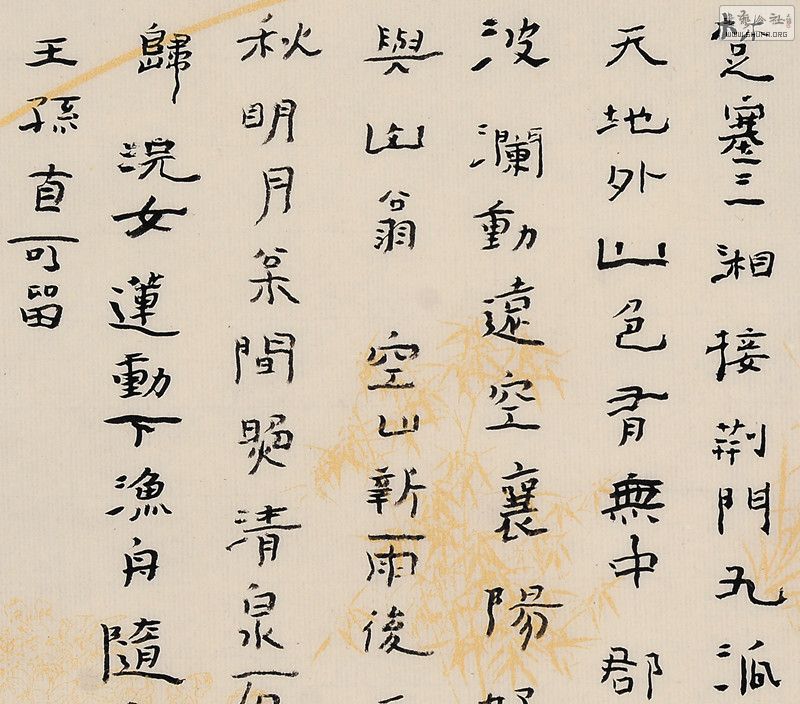 楚塞三湘接荊門九派
天地外山色有無中郡
波瀾動遠空襄陽好
與山翁 空山新雨後
秋明月枀間照清泉石
歸浣女蓮動下漁舟隨
王孫自可留
WWW.SHUFA.ORG